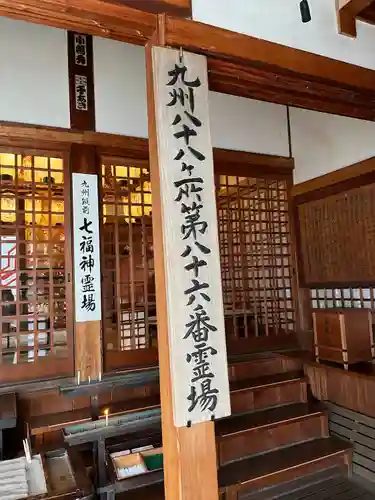 九州八十八ヶ所第八十六番霊場
九州筑前
七福神霊場